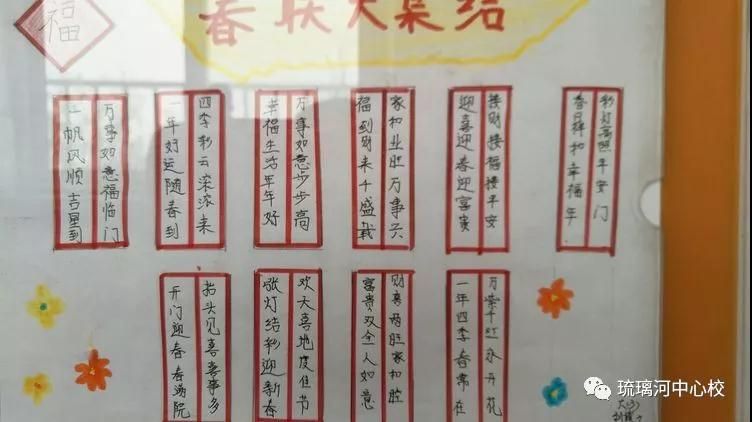 福
春联大集结
一帆风顺吉星到
万事如意福临门
一年好运随春到
四季彩云滚滚来
幸福生活年年好
万事如意步步高
福到财来千盛载
家和业胜万事
迎喜迎春迎富贵
接财接福接平安
春日祥和幸福年
彩灯高照平安门
开门迎春春满院
抬头见喜喜事多
张灯结彩迎新春
欢天喜地度佳节
富贵双全人如意
财喜两胜家和
一年四季春常在
万紫千红永开花
琉璃河中心校